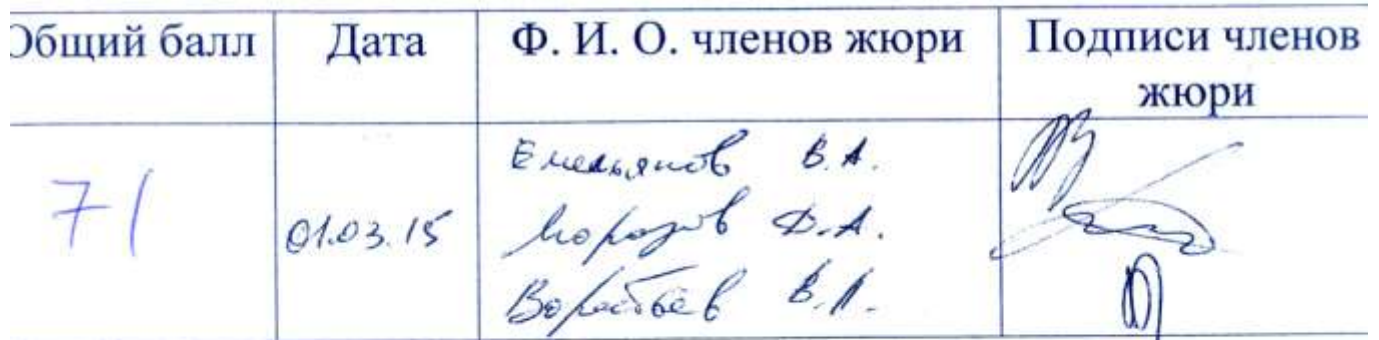 Общий балл Дата Ф. И. О. членов жюри Подписи членов
жюри
Емельянов В.А.
71 01.03.15 Морозов Д.А.
Воробьев В.А.